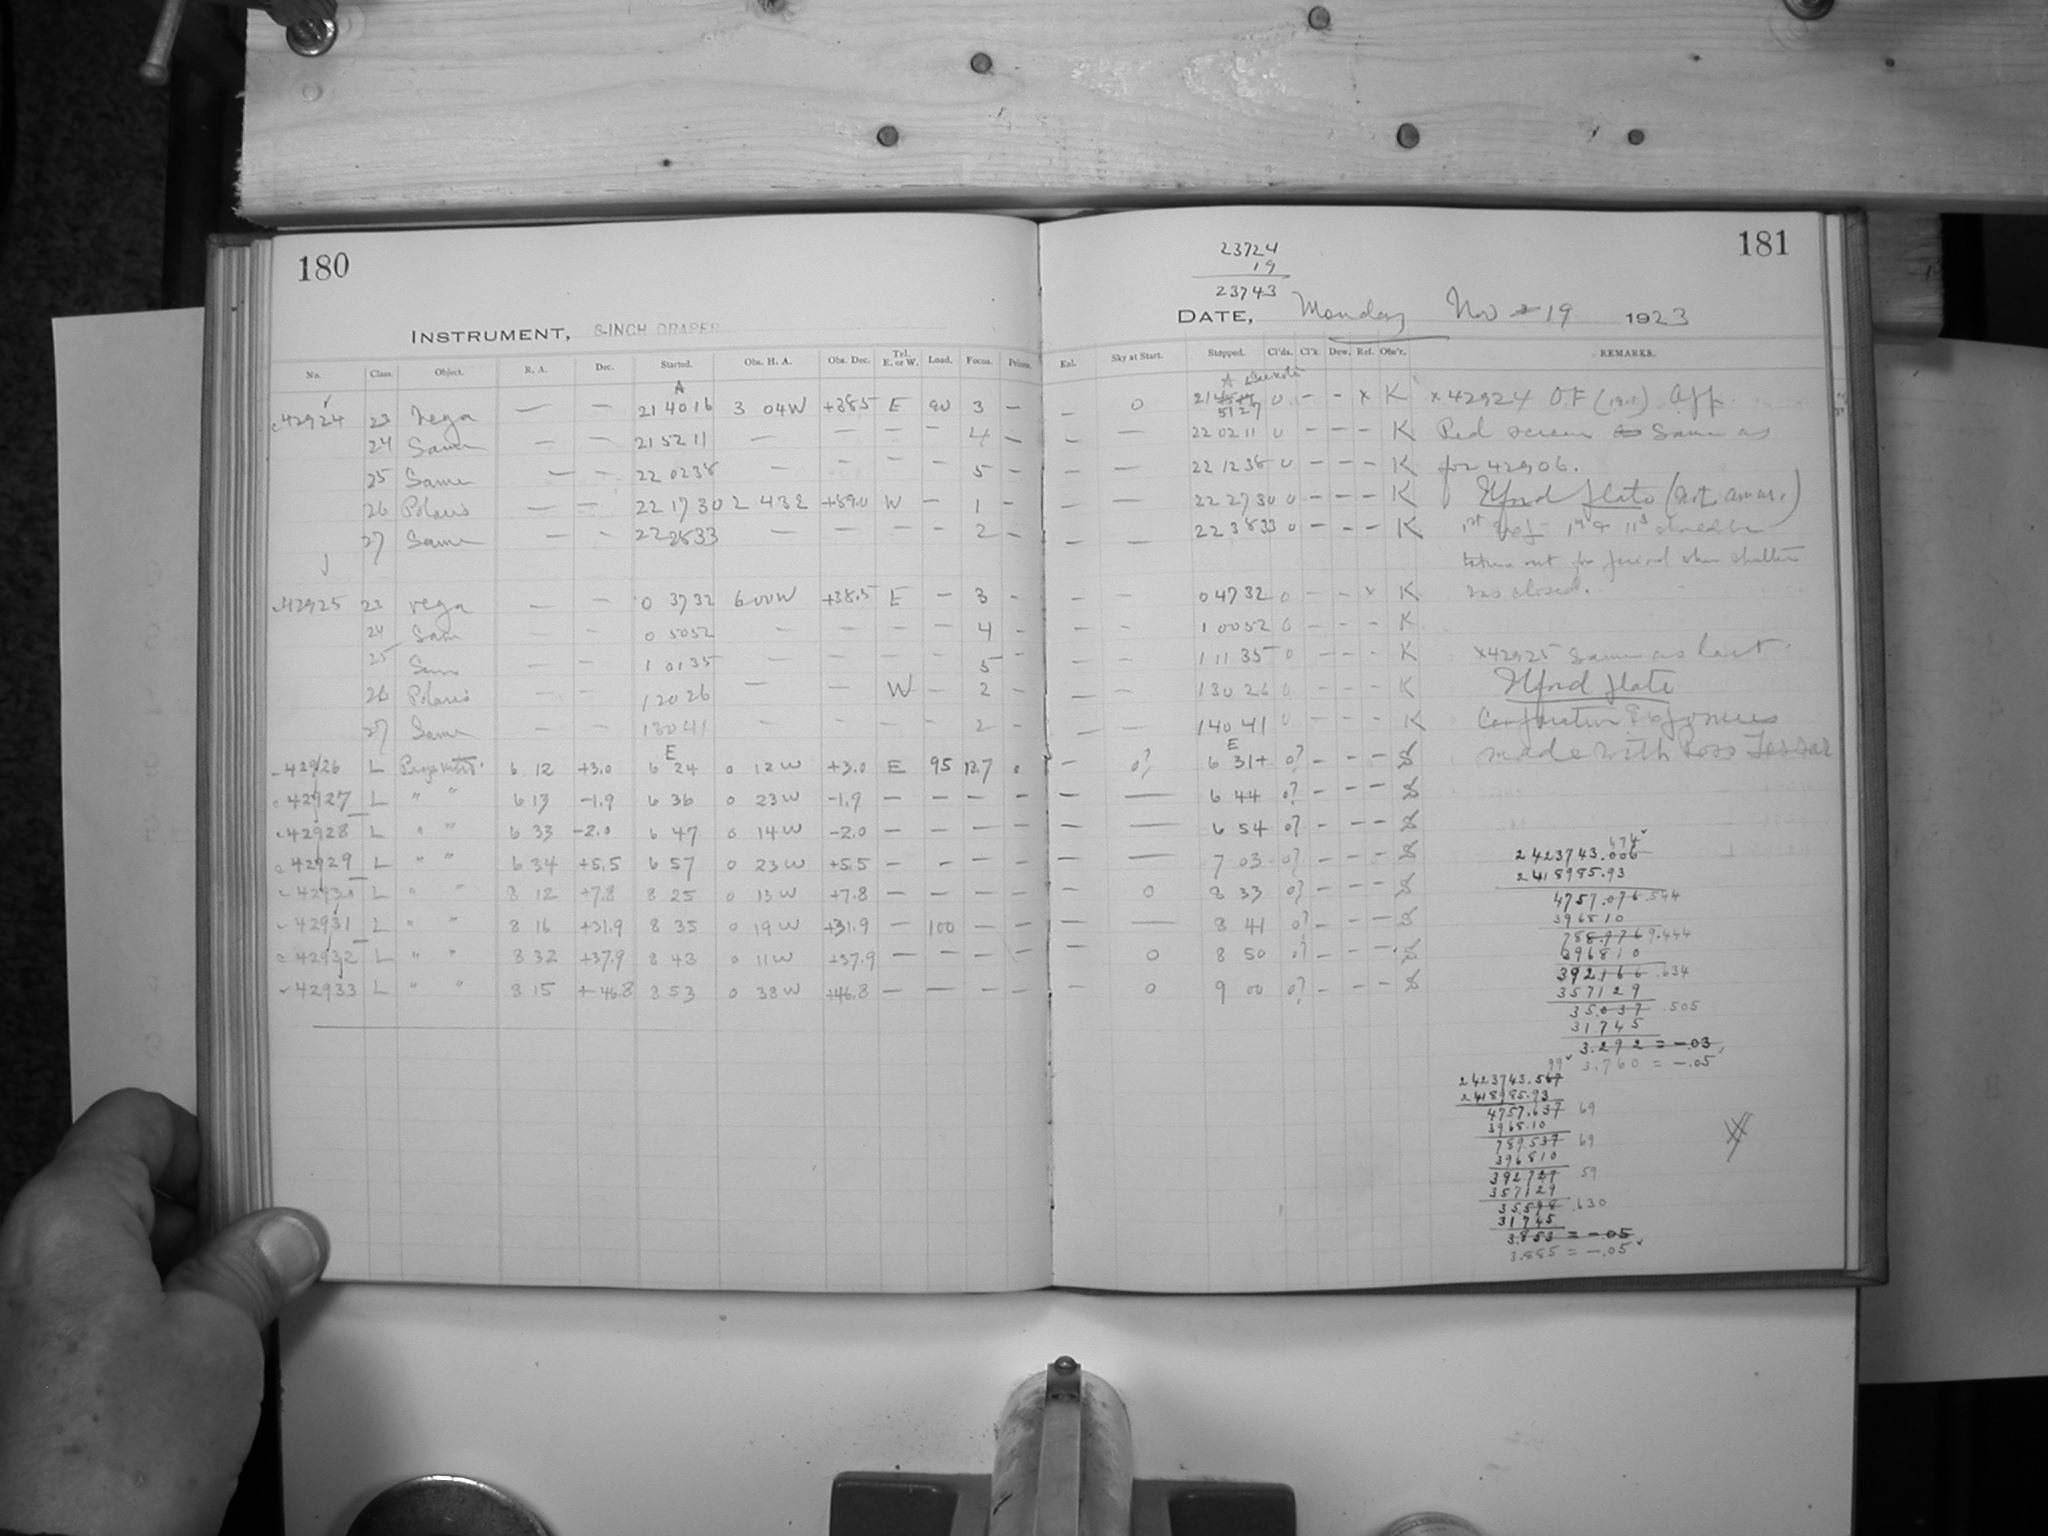 180
INSTRUMENT, 8-INCH DRAPER
No. Class. Object. R. A. Dec. Started. Obs. H. A. Obs. Dec. Tel. E. or W. Load. Focus. Prisms.
A
42924 23 Vega — — 21 40 16 3 04W +38.5 E 90 3 —
24 Same — — 21 52 11 — — — — 4 —
25 Same — — 22 02 38 — — — — 5 —
26 Polaris — — 22 17 30 2 43 E +89.0 W — 1 —
27 Same — — 22 28 33 — — — — 2 —
42925 23 Vega — — 0 37 32 6 00W +38.5 E — 3 —
24 Sam — — 0 50 52 — — — — 4 -
25 Sam — — 1 01 35 — — — — 5 -
26 Polaris — — 1 20 26 — — W — 2 -
27 Same — — 1 30 41 — — — — 2 -
E
42926 L 6 12 +3.0 6 24 0 12W +3.0 E 95 12.7 0
42927 L " " 6 13 -1.9 6 36 0 23W -1.9 — — — —
42928 L " " 6 33 -2.0 6 47 0 14W -2.0 — — — —
42929 L " " 6 34 +5.5 6 57 0 23W +5.5 — — — —
42930 L " " 8 12 +7.8 8 25 0 13W +7.8 — — — —
42931 L " " 8 16 +31.9 8 35 0 19W +31.9 — 100 — —
42932 L " " 8 32 +37.9 8 43 0 11W +37.9 — — — —
42933 L " " 8 15 +46.8 8 53 0 38W +46.8 — — — —
181
23724
19
23743
DATE, Monday Nov 19 1923
Exl. Sky at Start. Stopped. Cl'ds. Cl'k. Dew. Ref. Obs'r. REMARKS.
A
— 0 21 51 27 0 - - x K x 42924 OF
— — 22 02 11 0 - - - K Red screen Same as
— — 22 12 38 0 - - - K for 42906.
— — 22 27 30 0 - - - K Ilford plate
— — 22 38 33 0 - - - K
taken out for period when shutter
— — 0 47 32 0 - - x K was closed.
— — 1 00 52 0 - - - K
— — 1 11 35 0 - - - K x42925 Same as last.
— — 1 30 26 0 - - - K Ilford plate
— — 1 40 41 0 - - - K Comparison Exposures
E
— 0? 6 31+ 0? - - - S made with Ross Tessar
— — 6 44 0? - - - S
— — 6 54 0? - - - S
— — 7 03 0? - - - S
— 0 8 33 0? - - - S
— — 8 41 0? - - - S
— 0 8 50 0? - - - S
— 0 9 00 0? - - - S
474
2423743.006
2418985.93
4757.076 .544
3968 10
788.976 9.444
396810
392166 .634
357129
35.037 .505
31 745
3.292 = -.03
99 3.760 = -.05
2423743.567
2418985.93
4757.637 69
3968.10
789.537 69
396810
392727 59
357129
35.598 .630
31745
3.853 = -.05
3.885 = -.05